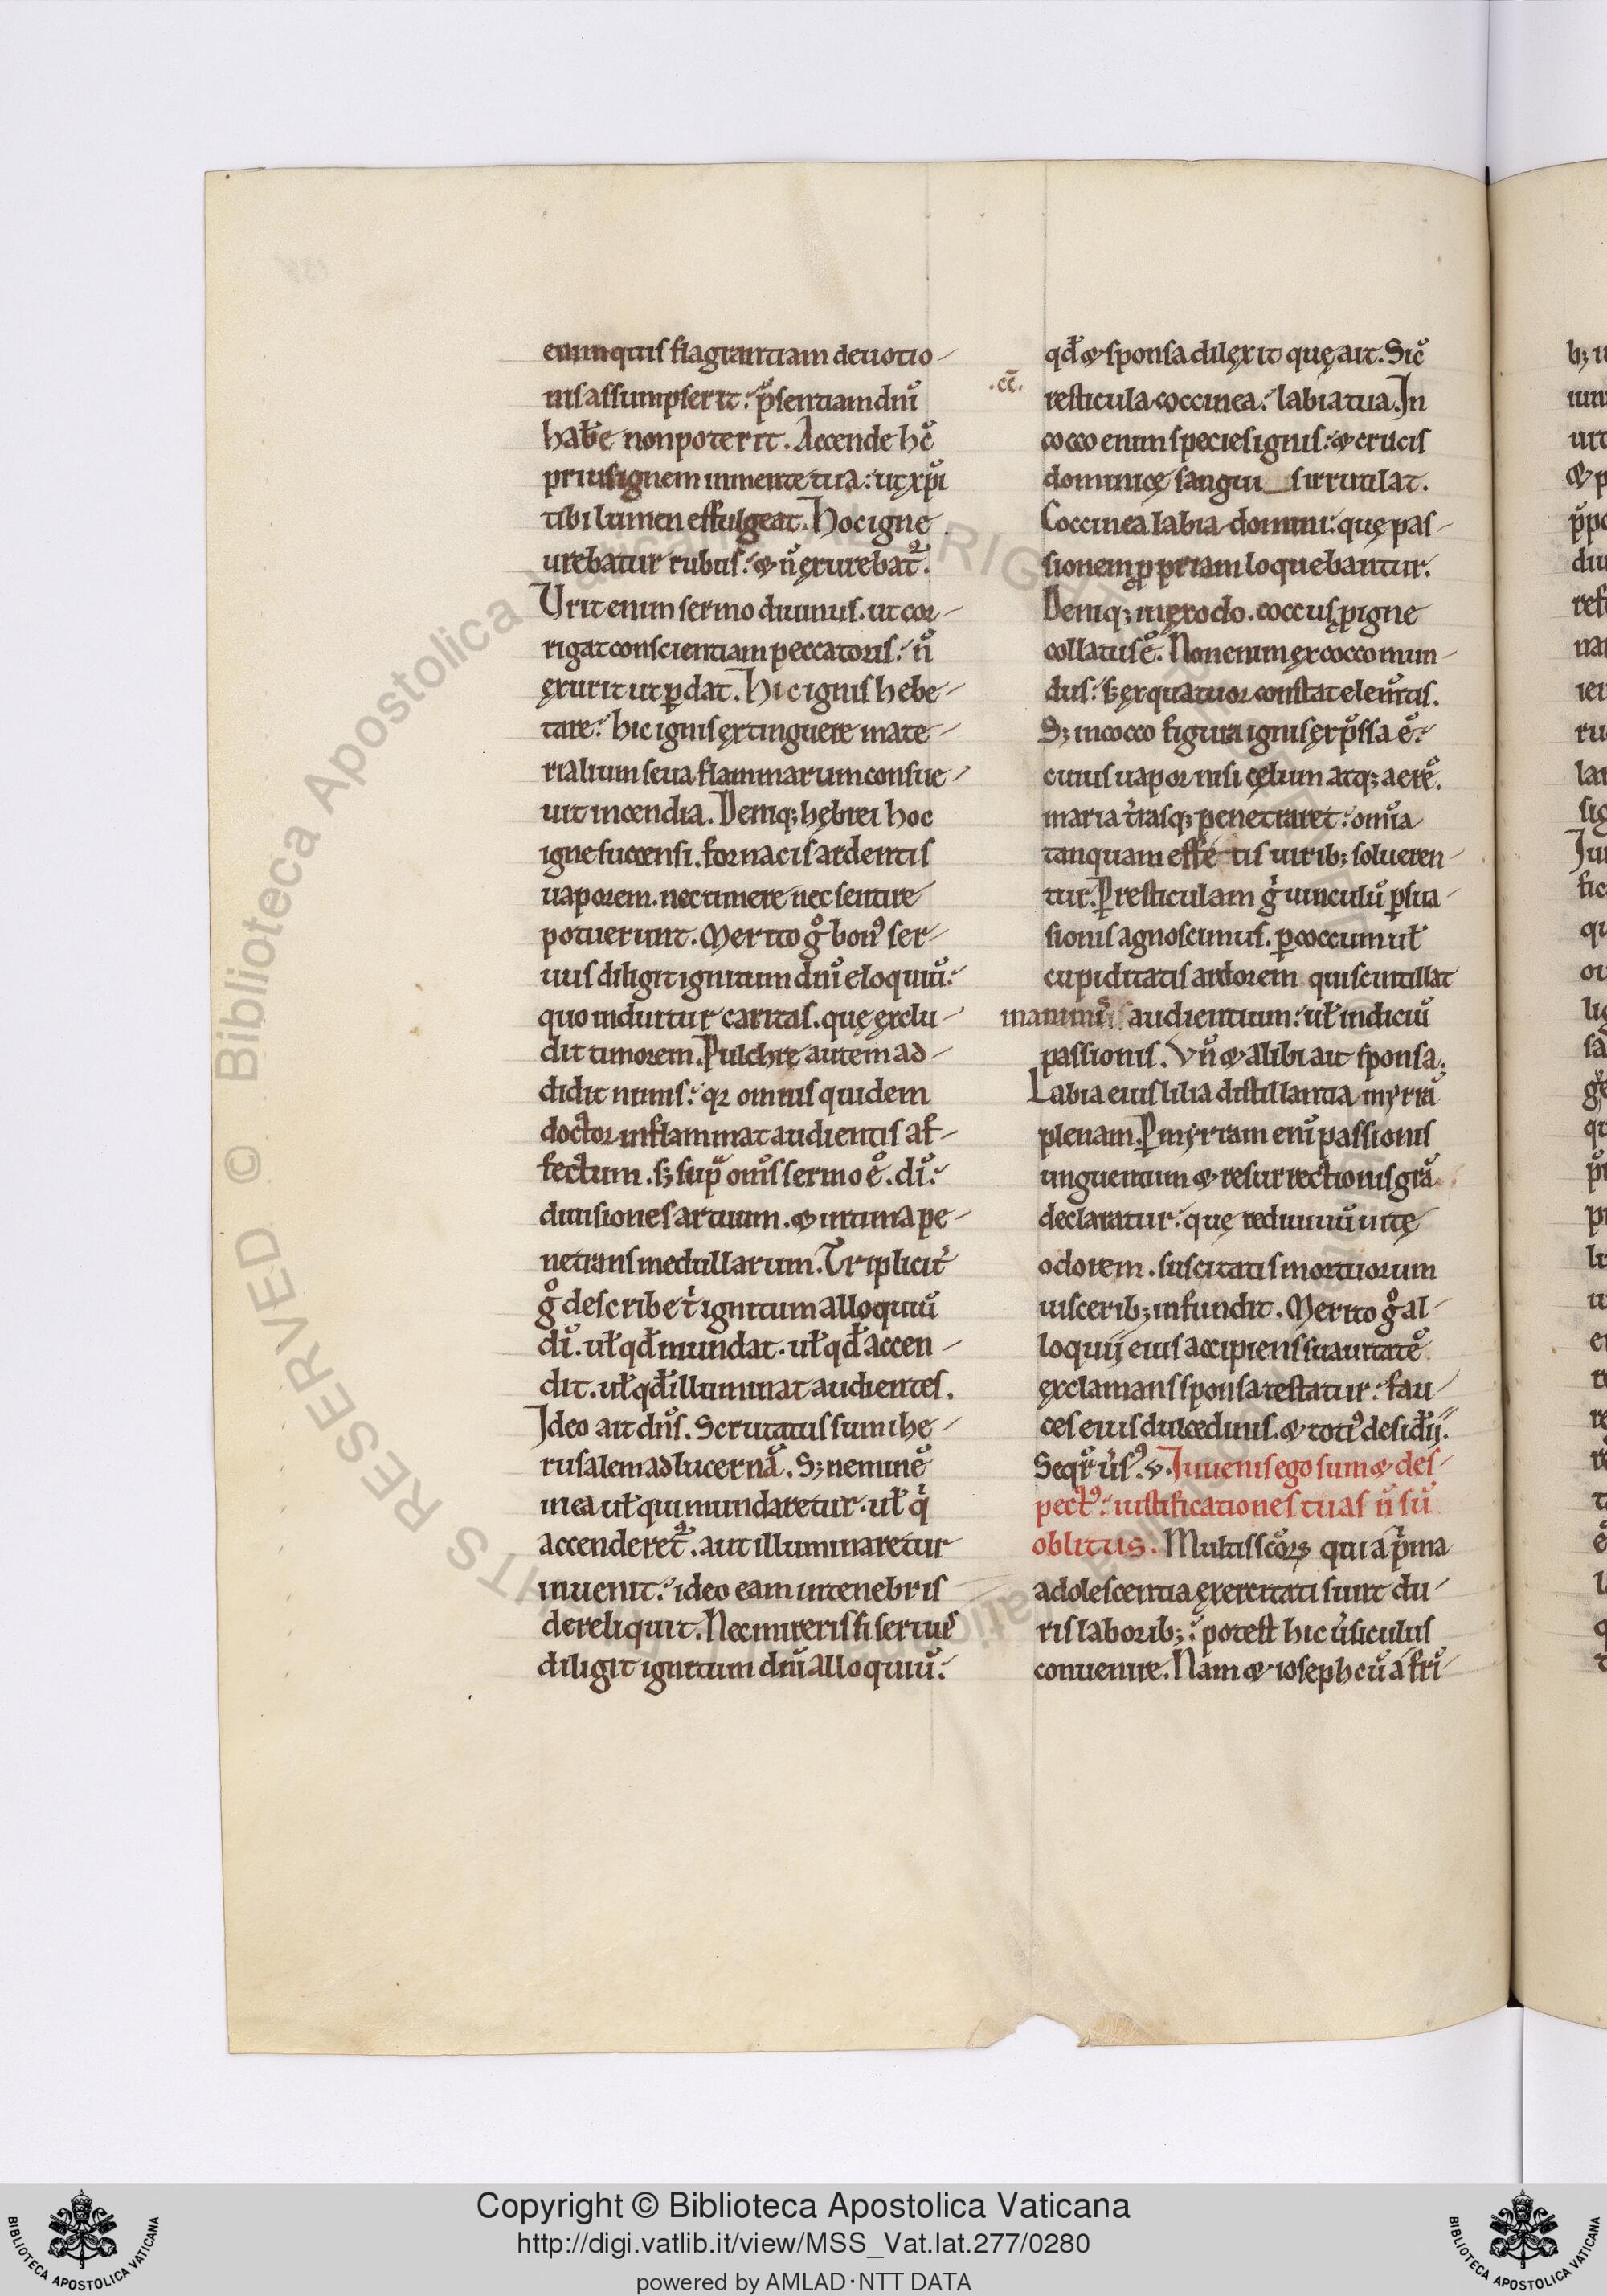 enim quis flagrantiam deuotio-
nis assumpserit: p̄sentiam dn̄i
hab̄e non poterit. Accende hc̄
prius ignem in mente tua: ut xp̄i
tibi lumen effulgeat. Hoc igne
urebatur rubus: & n̄ ęxurebat᷑.
Urit enim sermo diuinus. ut cor-
rigat conscientiam peccatoris: n̄
ęxurit ut ꝑdat. Hic ignis hebe-
tare: hic ignis ęxtinguere mate-
rialium seua flammarum consue-
uit incendia. Deniq; hębrei hoc
igne succensi. fornacis ardentis
uaporem. nec timere nec sentire
potuerunt. Merito gͦ bonꝰ ser-
uus diligit ignitum dn̄i eloquiū:
quo induitur caritas. quę ęxclu-
dit timorem. Pulchre autem ad-
didit nimis: qꝛ omnis quidem
doctor inflammat audientis af-
fectum. sꝫ sup̄ om̄s sermo ē. di:
diuisiones artuum. & intima pe-
netrans medullarum. Triplicit̄
gͦ describet᷑ ignitum alloquiū
dī. ut̄ qd̄ mundat. ut̄ qd̄ accen-
dit. ut̄ qd̄ illuminat audientes.
Ideo ait dn̄s. Scrutatus sum ihe-
rusalem ad lucernā. Sꝫ neminē
in ea ut̄ qui mundaretur. ut̄ qͥ
accenderet᷑. aut illuminaretur
inuenit: ideo eam in tenebris
dereliquit. Nec mireris si seruus
diligit ignitum dn̄i alloquiū:
.cc̄.
qd̄ & sponsa dilęxit quę ait. Sic̄
resticula coccinea: labia tua. In
cocco enim species ignis: & crucis
dominicę sangui_s irrutilat.
Coccinea labia domini: quę pas-
sionem ꝓpriam loquebantur.
Deniq; in ęxodo. coccus ꝓ igne
collatus ē. Non enim ęx cocco mun-
dus: sꝫ ęx quatuor constat elem̄tis.
Sꝫ in cocco figura ignis ęxp̄ssa ē:
cuius uapor nisi cęlum atq; aerē.
maria t̄rasq; penetraret: om̄ia
tanquam effetis uirib; solueren-
tur. Ꝑ resticulam gͥ uinculū ꝑsua-
sionis agnoscimus. ꝑ coccum ut̄
cupiditatis ardorem qui scintillat
in animis audientium: ut̄ indiciū
passionis. Vn̄ & alibi ait sponsa.
Labia eius lilia distillantia myrrā
plenam. Ꝑ myrram eni passionis
unguentum & resurrectionis grā
declaratur: quę rediuiuū uitę
odorem. suscitatis mortuorum
uiscerib; infundit. Merito gͦ al-
loquij eius accipiens suauitatē
ęxclamans sponsa testatur: fau-
ces eius dulcedinis. & totꝰ desid̄ij.
Seqr̄ ūsꝰ. v. Iuuenis ego sum & des-
pectꝰ: iustificationes tuas n̄ sū
oblitus. Multis sc̄oꝝ qui a pͥma
adolescentia ęxercitati sunt du-
ris laborib; : potest hic ūsiculus
conuenire. Nam & ioseph cū a frī-
Copyright © Biblioteca Apostolica Vaticana
http://digi.vatlib.it/view/MSS_Vat.lat.277/0280
powered by AMLAD·NTT DATA